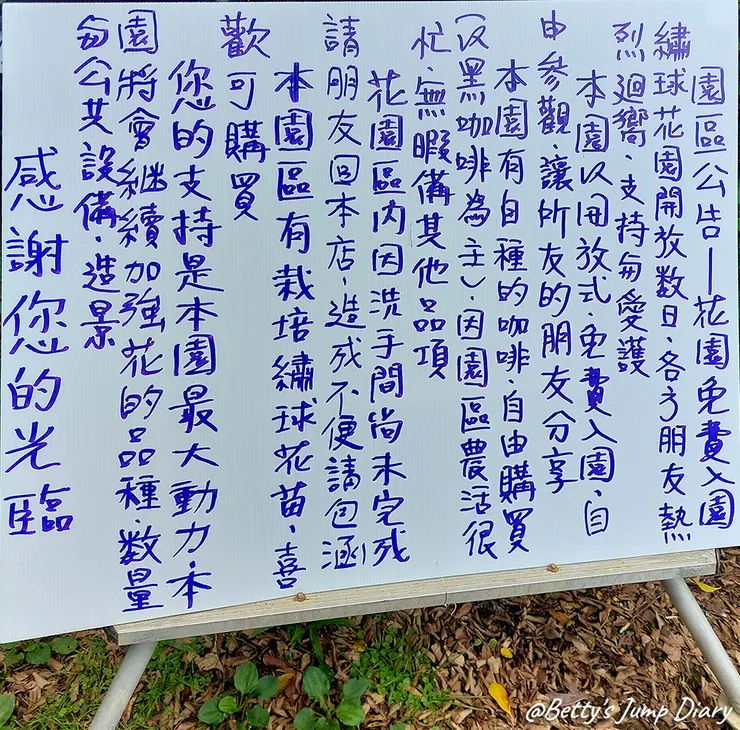 園區公告—花園免費入園
繡球花園開放数日、各方朋友熱
烈迴嚮、支持與愛護
本園以開放式、免費入園、自
由參觀、讓所友的朋友分享
本園有自種的咖啡、自由購買
(以黑咖啡為主)、因園區農活很
忙、無暇備其他品項
花園區內因洗手間尚未完成
請朋友回本店、造成不便請包涵
本園區有栽培繡球花苗、喜
歡可購買
您的支持是本園最大動力、本
園將會継續加強花的品種、数量
與公共設備、造景
感謝您的光臨
@Betty's Jump Diary